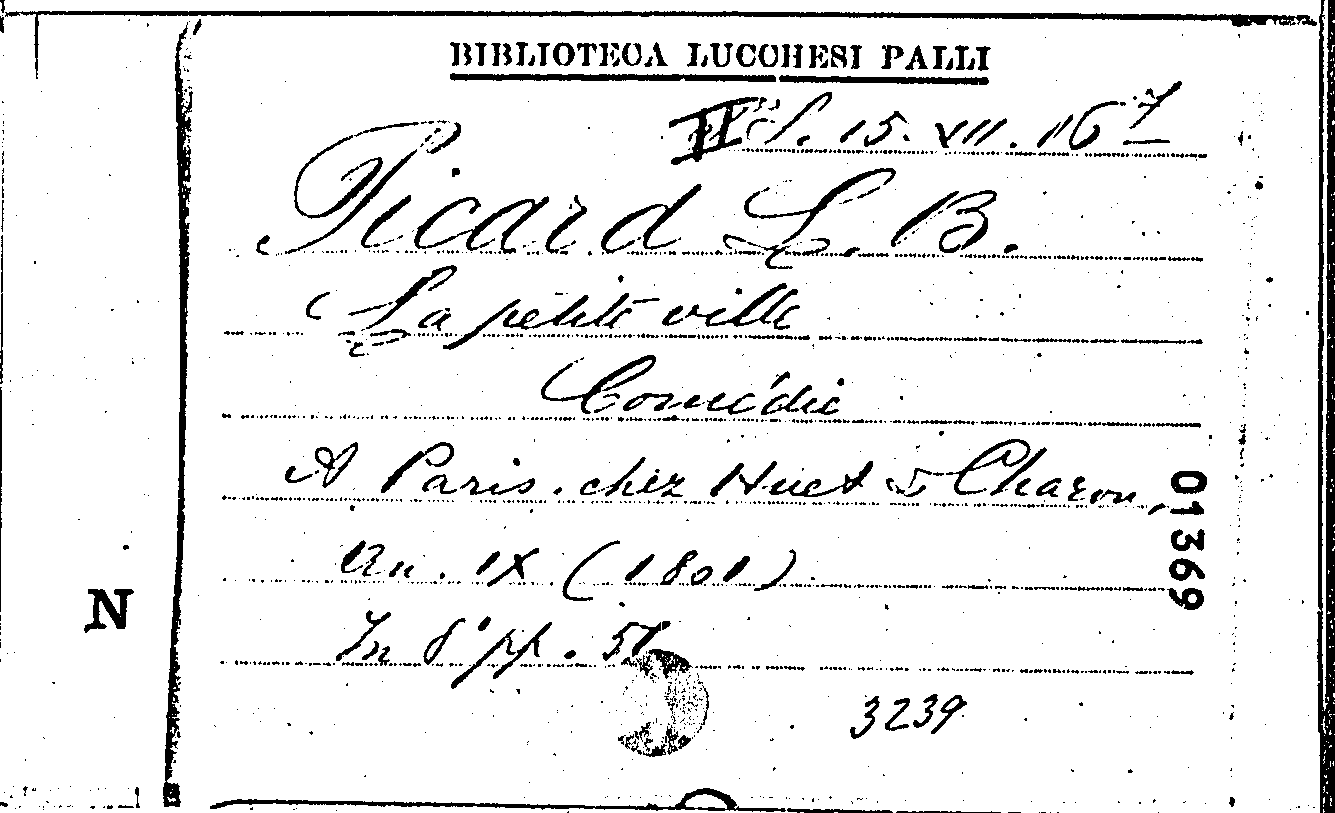 BIBLIOTECA LUCCHESI PALLI
II S. 15. VII. 16 7
Picard L. B.
La petite ville
Comédie
A Paris. chez Huet & Charon,
An. IX (1801)
In 8° pp.
3239
01369
N